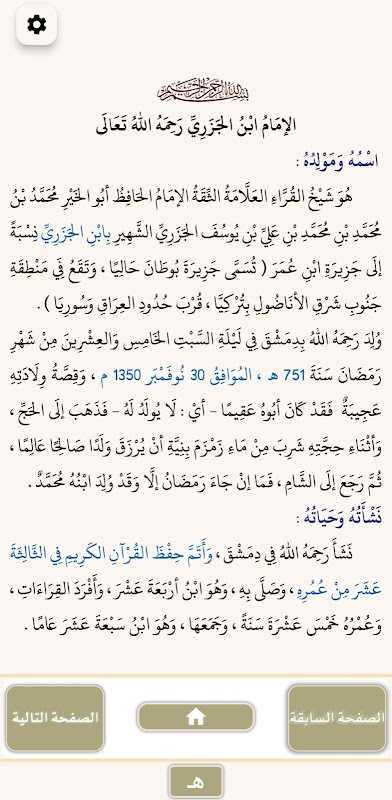 بِسْمِ اللهِ الرَّحْمٰنِ الرَّحِيمِ
الإِمَامُ ابْنُ الجَزَرِيِّ رَحِمَهُ اللهُ تَعَالَى
اسْمُهُ وَمَوْلِدُهُ :
هُوَ شَيْخُ القُرَّاءِ العَلَّامَةُ الثِّقَةُ الإِمَامُ الحَافِظُ أَبُو الخَيْرِ مُحَمَّدُ بْنُ
مُحَمَّدِ بْنِ مُحَمَّدِ بْنِ عَلِيِّ بْنِ يُوسُفَ الجَزَرِيِّ الشَّهِيرِ بِابْنِ الجَزَرِيِّ نِسْبَةً
إِلَى جَزِيرَةِ ابْنِ عُمَرَ ( تُسَمَّى جَزِيرَةَ بُوطَانَ حَالِيًا ، وَتَقَعُ فِي مَنْطِقَةِ
جَنُوبِ شَرْقِ الأَنَاضُولِ بِتُرْكِيَّا ، قُرْبَ حُدُودِ العِرَاقِ وَسُورِيَا ) .
وُلِدَ رَحِمَهُ اللهُ بِدِمَشْقَ فِي لَيْلَةِ السَّبْتِ الخَامِسِ وَالعِشْرِينَ مِنْ شَهْرِ
رَمَضَانَ سَنَةَ 751 هـ ، المُوَافِقُ 30 نُوفَمْبَر 1350 م ، وَقِصَّةُ وِلَادَتِهِ
عَجِيبَةٌ فَقَدْ كَانَ أَبُوهُ عَقِيمًا - أَيْ : لَا يُولَدُ لَهُ - فَذَهَبَ إِلَى الحَجِّ ،
وَأَثْنَاءَ حِجَّتِهِ شَرِبَ مِنْ مَاءِ زَمْزَمَ بِنِيَّةِ أَنْ يُرْزَقَ وَلَدًا صَالِحًا عَالِمًا ،
ثُمَّ رَجَعَ إِلَى الشَّامِ ، فَمَا إِنْ جَاءَ رَمَضَانُ إِلَّا وَقَدْ وُلِدَ ابْنُهُ مُحَمَّدٌ .
نَشْأَتُهُ وَحَيَاتُهُ :
نَشَأَ رَحِمَهُ اللهُ فِي دِمَشْقَ ، وَأَتَمَّ حِفْظَ القُرْآنِ الكَرِيمِ فِي الثَّالِثَةَ
عَشَرَ مِنْ عُمُرِهِ ، وَصَلَّى بِهِ ، وَهُوَ ابْنُ أَرْبَعَةَ عَشَرَ ، وَأَفْرَدَ القِرَاءَاتِ ،
وَعُمْرُهُ خَمْسَ عَشْرَةَ سَنَةً ، وَجَمَعَهَا ، وَهُوَ ابْنُ سَبْعَةَ عَشَرَ عَامًا .
الصفحة السابقة
الصفحة التالية
هـ